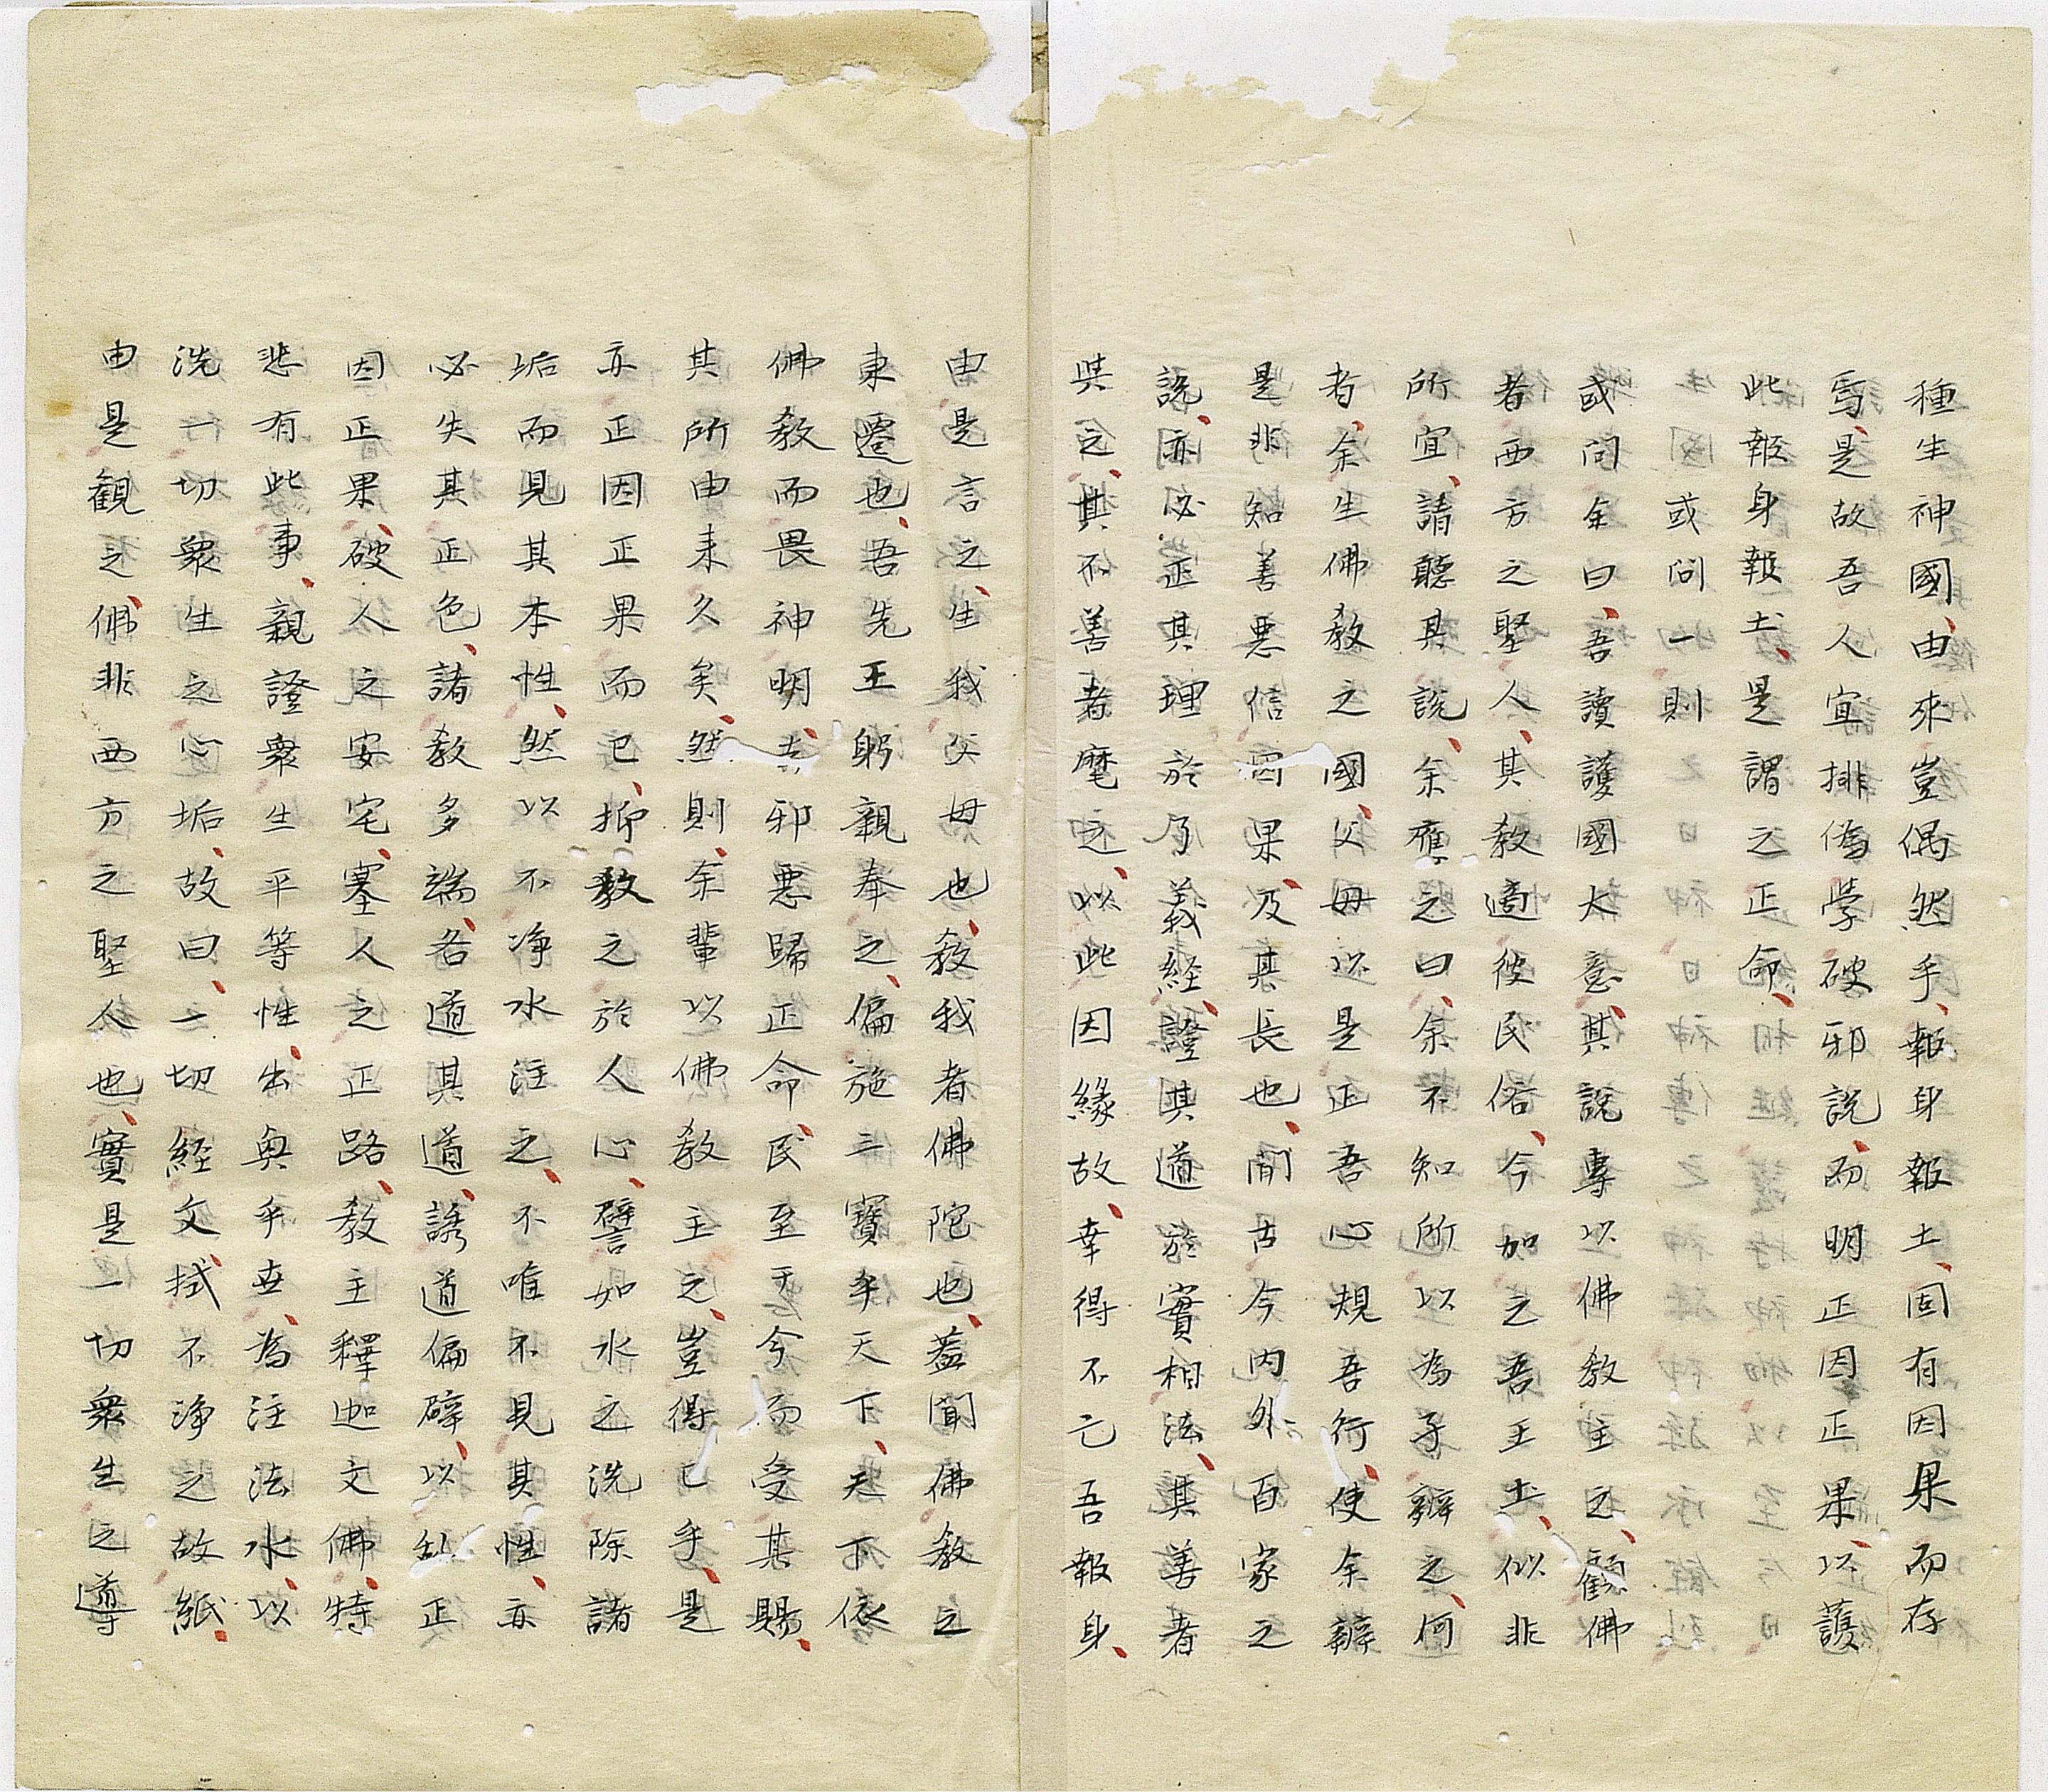 種生神國、由來豈偶然乎、報身報土、固有因果而存
焉、是故吾人宜排偽學破邪説、而明正因正果、以護
此報身報土、是謂之正命、
或問一則
或問余曰、吾讀護國大意、其説專以佛教主之、顧佛
者西方之聖人、其教適彼民俗、今如之吾王土、似非
所宜、請聽其説、余應之曰、余不知所以為子辯之、何
者、余生佛教之國、父母以是正吾心規吾行、使余辯
是非知善悪信因果、及其長也、閲古今内外百家之
説、亦必正其理於了義経、證其道於實相法、其善者
與之、其不善者麾之、以此因緣故、幸得不亡吾報身、
由是言之、生我父母也、教我者佛陀也、蓋聞佛教之
東遷也、吾先王躬親奉之、偏施三寶乎天下、天下依
佛教而畏神明、去邪悪歸正命、民至于今而受其賜、
其所由来久矣、然則余輩以佛教主之、豈得已乎、是
亦正因正果而已、抑教之於人心、譬如水之洗除諸
垢而見其本性、然以不净水注之、不唯不見其性、亦
必失其正色、諸教多端、各道其道、誘道偏僻、以乱正
因正果、破人之安宅、塞人之正路、教主釋迦文佛、特
悲有此事、親證衆生平等性、出興乎世、為注法水、以
洗一切衆生之心垢、故曰、一切経文拭不浄之故紙、
由是観之、佛非西方之聖人也、實是一切衆生之導